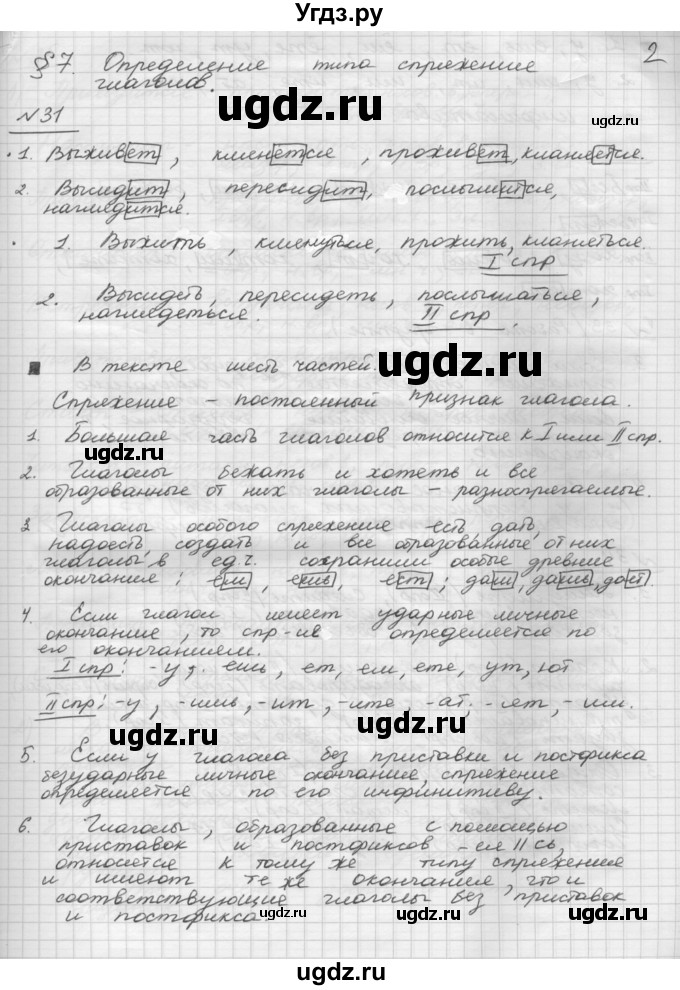 Угдз.ру
2
§7. Определение типа спряжение
глаголов.
ugdz.ru
№31
ugdz.ru
1. Выживет, клянется, проживет, кланяется.
2. Высидит, пересидит, послышится,
наглядится.
1. Выжить, клянуться, прожить, кланяться.
I спр
2. Высидеть, пересидеть, послышаться,
наглядеться. II спр.
ugdz.ru
В тексте шесть частей.
Спряжение – постоянный признак глагола.
1. Большая часть глаголов относится к I или II спр.
2. Глаголы бежать и хотеть и все
образованные от них глаголы – разноспрягаемые.
ugdz.ru
3 Глаголы особого спряжение есть, дать,
надоесть, создать и все образованные от них
глаголы, в ед.ч. сохранили особые древние
окончание: ем, ешь, ест; дам, дашь, даст.
ugdz.ru
4. Если глагол имеет ударные личные
окончание, то спр-ив определяется по
его окончанием.
I спр: -у, -ешь, ет, ем, ете, ут, ют
II спр: -у, -ишь, -ит, -ите, -ат, -ят, -им.
ugdz.ru
5. Если у глагола без приставки и постфикса
безударные личные окончание, спряжение
определяется по его инфинитиву.
ugdz.ru
6. Глаголы, образованные с помощью
приставок и постфиксов -ся II сь,
относятся к тому же типу спряжения
и имеют те же окончание, что и
соответствующие глаголы без приставок
и постфикса.
ugdz.ru
ugdz.ru